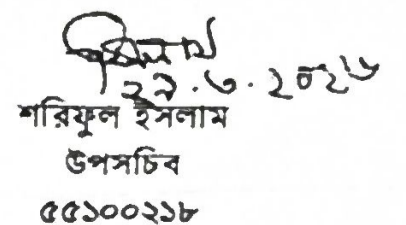 ২৯.৩.২০২৬
শরিফুল ইসলাম
উপসচিব
৫৫১০০২১৮